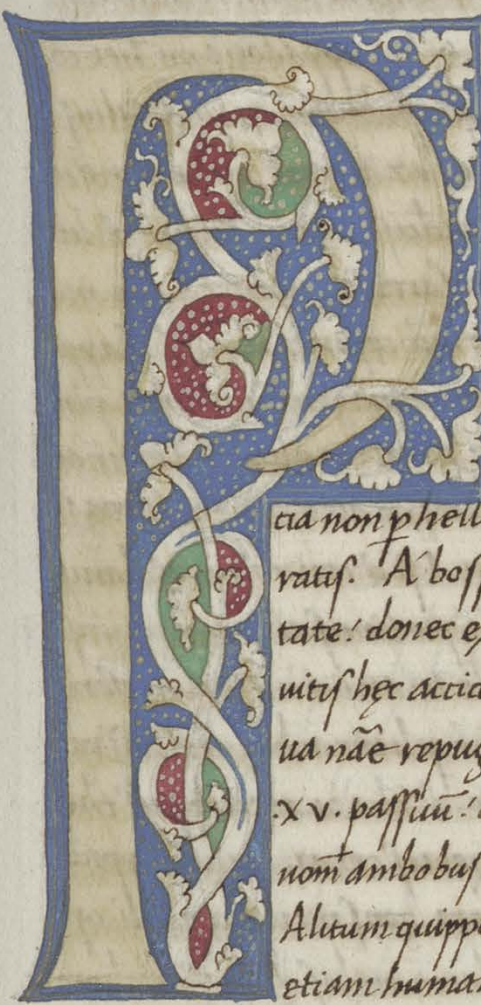 P
cia non ꝑ hell
ratis. A bos
tate: donec e
uitis hęc accid
ua nãe repug
.xv. passuũ:
nom̃ ambobus
Alitum quipp
etiam huma